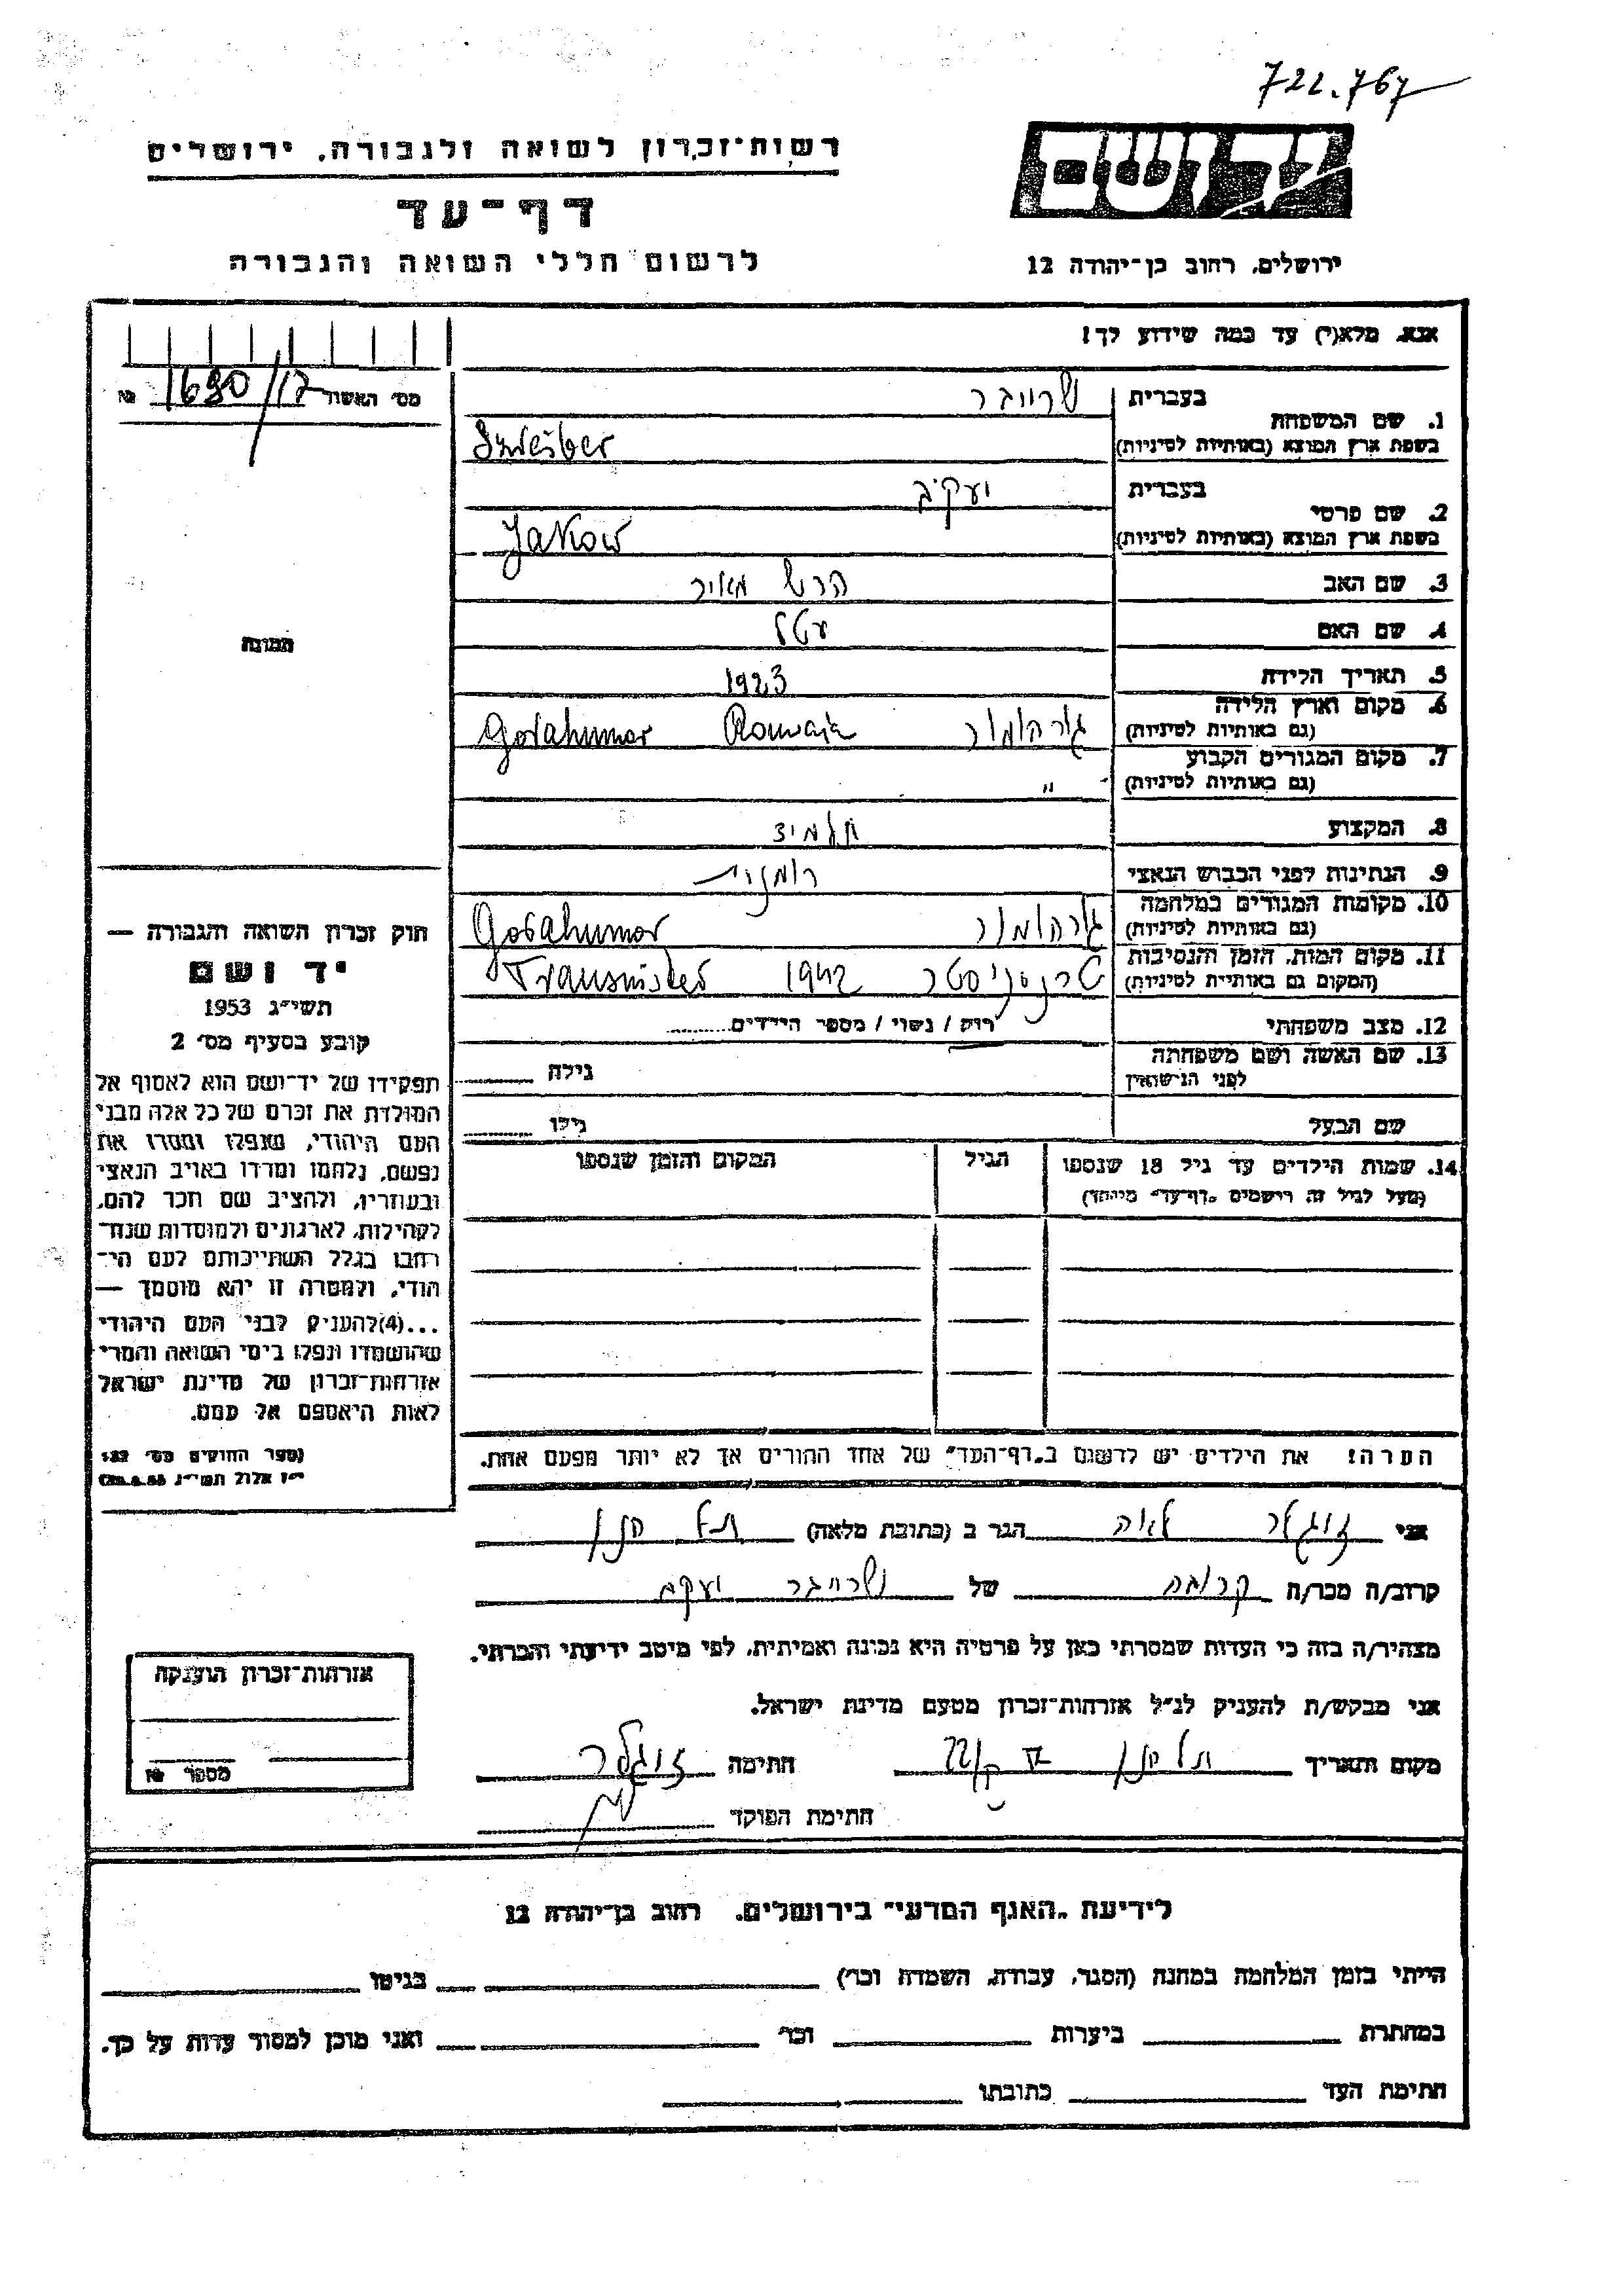 722.767
יד ושם
רשות־זכרון לשואה ולגבורה, ירושלים
דף־עד
לרשום חללי השואה והגבורה
ירושלים, רחוב בן־יהודה 12
אנא, מלא(י) עד כמה שידוע לך!
מס' האשור 1690/17 №
בעברית שרייבר
1. שם המשפחה
בשפת ארץ המוצא (באותיות לטיניות) Shreiber
בעברית יעקב
2. שם פרטי
בשפת ארץ המוצא (באותיות לטיניות) Jakow
3. שם האב הרש מאיר
4. שם האם עטל
5. תאריך הלידה 1923
6. מקום וארץ הלידה
(גם באותיות לטיניות) גורהומור Gorahumor
7. מקום המגורים הקבוע
(גם באותיות לטיניות) "
8. המקצוע תלמיד
9. הנתינות לפני הכבוש הנאצי רומנית
10. מקומות המגורים במלחמה
(גם באותיות לטיניות) גורהומור Gorahumor
11. מקום המות, הזמן והנסיבות
(המקום גם באותיות לטיניות) טרנסניסטר 1942 Transnister
12. מצב משפחתי רוק / נשוי / מספר הילדים
13. שם האשה ושם משפחתה
לפני הנישואין גילה
שם הבעל גילו
14. שמות הילדים עד גיל 18 שנספו הגיל המקום והזמן שנספו
(מעל לגיל זה רושמים "דף־עד" מיוחד)
הערה! את הילדים יש לרשום ב"דף־העד" של אחד ההורים אך לא יותר מפעם אחת.
תמונה
חוק זכרון השואה והגבורה —
יד ושם
תשי"ג 1953
קובע בסעיף מס' 2
תפקידו של יד־ושם הוא לאסוף אל
המולדת את זכרם של כל אלה מבני
העם היהודי, שנפלו ומסרו את
נפשם, נלחמו ומרדו באויב הנאצי
ובעוזריו, ולהציב שם וזכר להם,
לקהילות, לארגונים ולמוסדות שנח־
רבו בגלל השתייכותם לעם הי־
הודי, ולמטרה זו יהא מוסמך —
...(4)להעניק לבני העם היהודי
שהושמדו ונפלו בימי השואה והמרי
אזרחות־זכרון של מדינת ישראל
לאות היאספם אל עמם.
(ספר החוקים מס' 132
י"ז אלול תשי"ג
אני זוגלר לאה הגר ב (כתובת מלאה) תל חנן
קרוב/ה מכר/ה קרובה של שרייבר יעקב
מצהיר/ה בזה כי העדות שמסרתי כאן על פרטיה היא נכונה ואמיתית, לפי מיטב ידיעתי והכרתי.
אני מבקש/ת להעניק לנ"ל אזרחות־זכרון מטעם מדינת ישראל.
מקום ותאריך תל חנן חתימה זוגלר
חתימת הפוקד
אזרחות־זכרון הוענקה
מספר №
לידיעת "האגף המדעי" בירושלים, רחוב בן־יהודה 12
הייתי בזמן המלחמה במחנה (הסגר, עבודה, השמדה וכו') בגיטו
במחתרת ביערות וכו' ואני מוכן למסור עדות על כך.
חתימת העד כתובתו